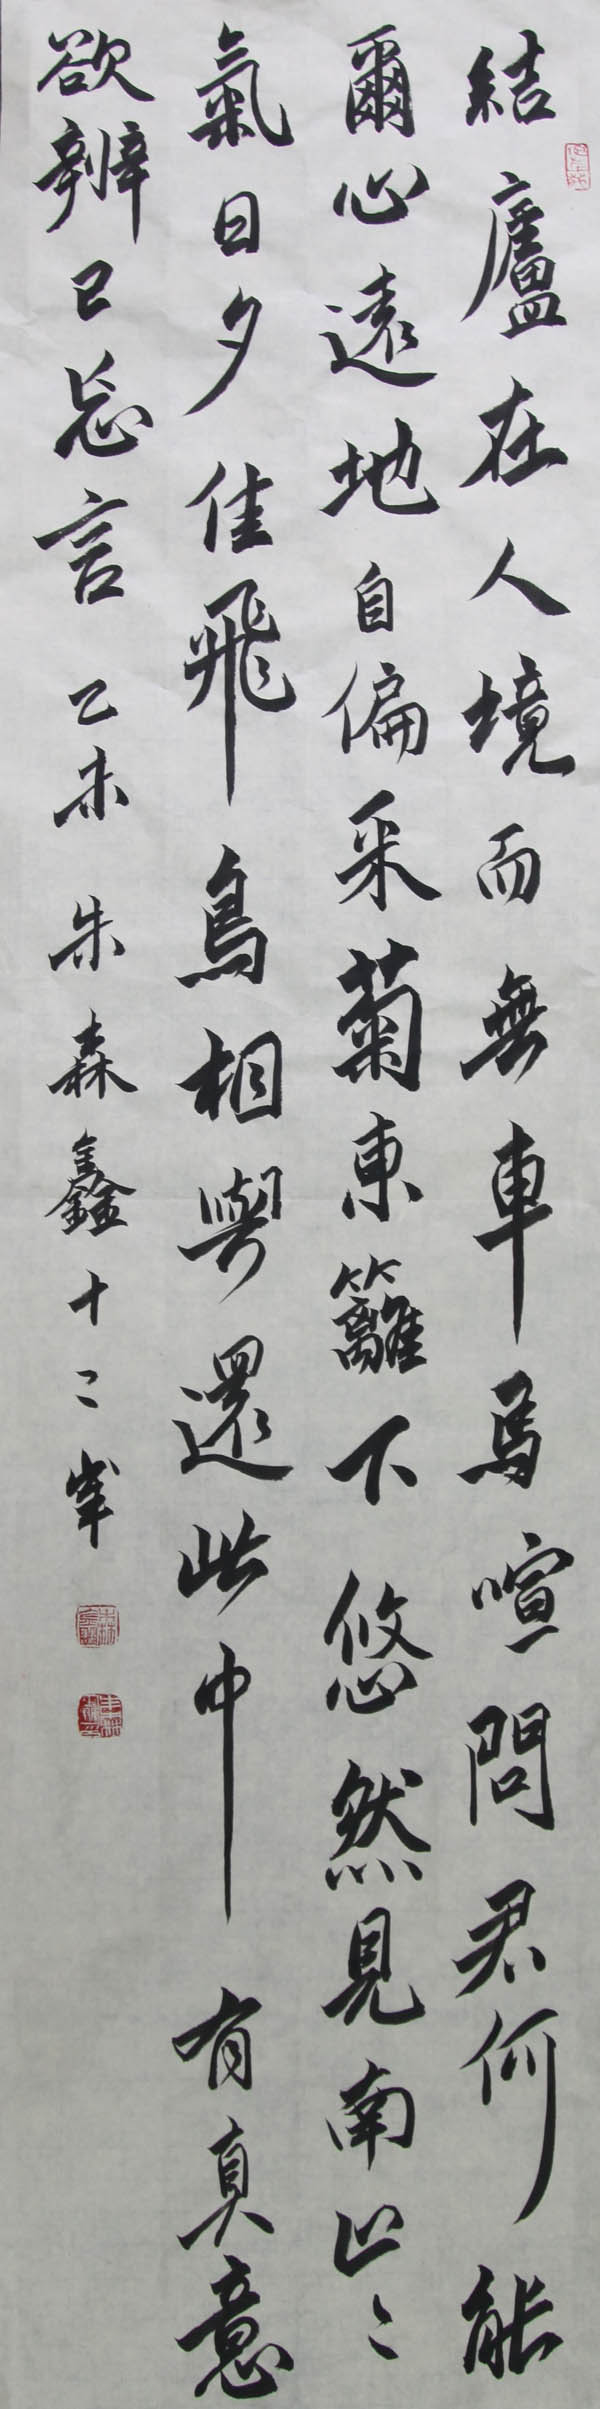 結廬在人境而無車馬喧問君何能
爾心遠地自偏采菊東籬下悠然見南山〻
氣日夕佳飛鳥相與還此中有真意
欲辨已忘言 乙未 朱森鑫十二